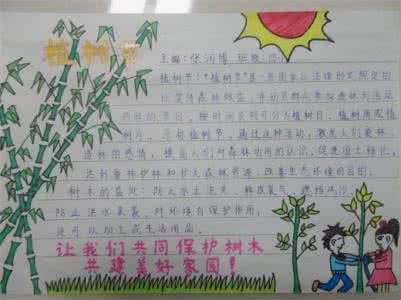 植树节
主编：张润博 班级：
植树节:"植树节"是一些国家以法律形式规定的
以宣传森林效益，并动员群众参加造林为活动
内容的节日，按时间长短可分为植树日、植树周或植树
月，通过这种活动，激发人们爱林、
造林的感情，提高人们对森林功用的认识，促进国土绿化，
达到爱林护林和扩大森林资源、改善生态环境的目的。
树木的益处：防止水土流失、释放氧气、
防止洪水泛滥，对环境有保护作用，
还可以加工成生活用品。
让我们共同保护树木
共建美好家园！